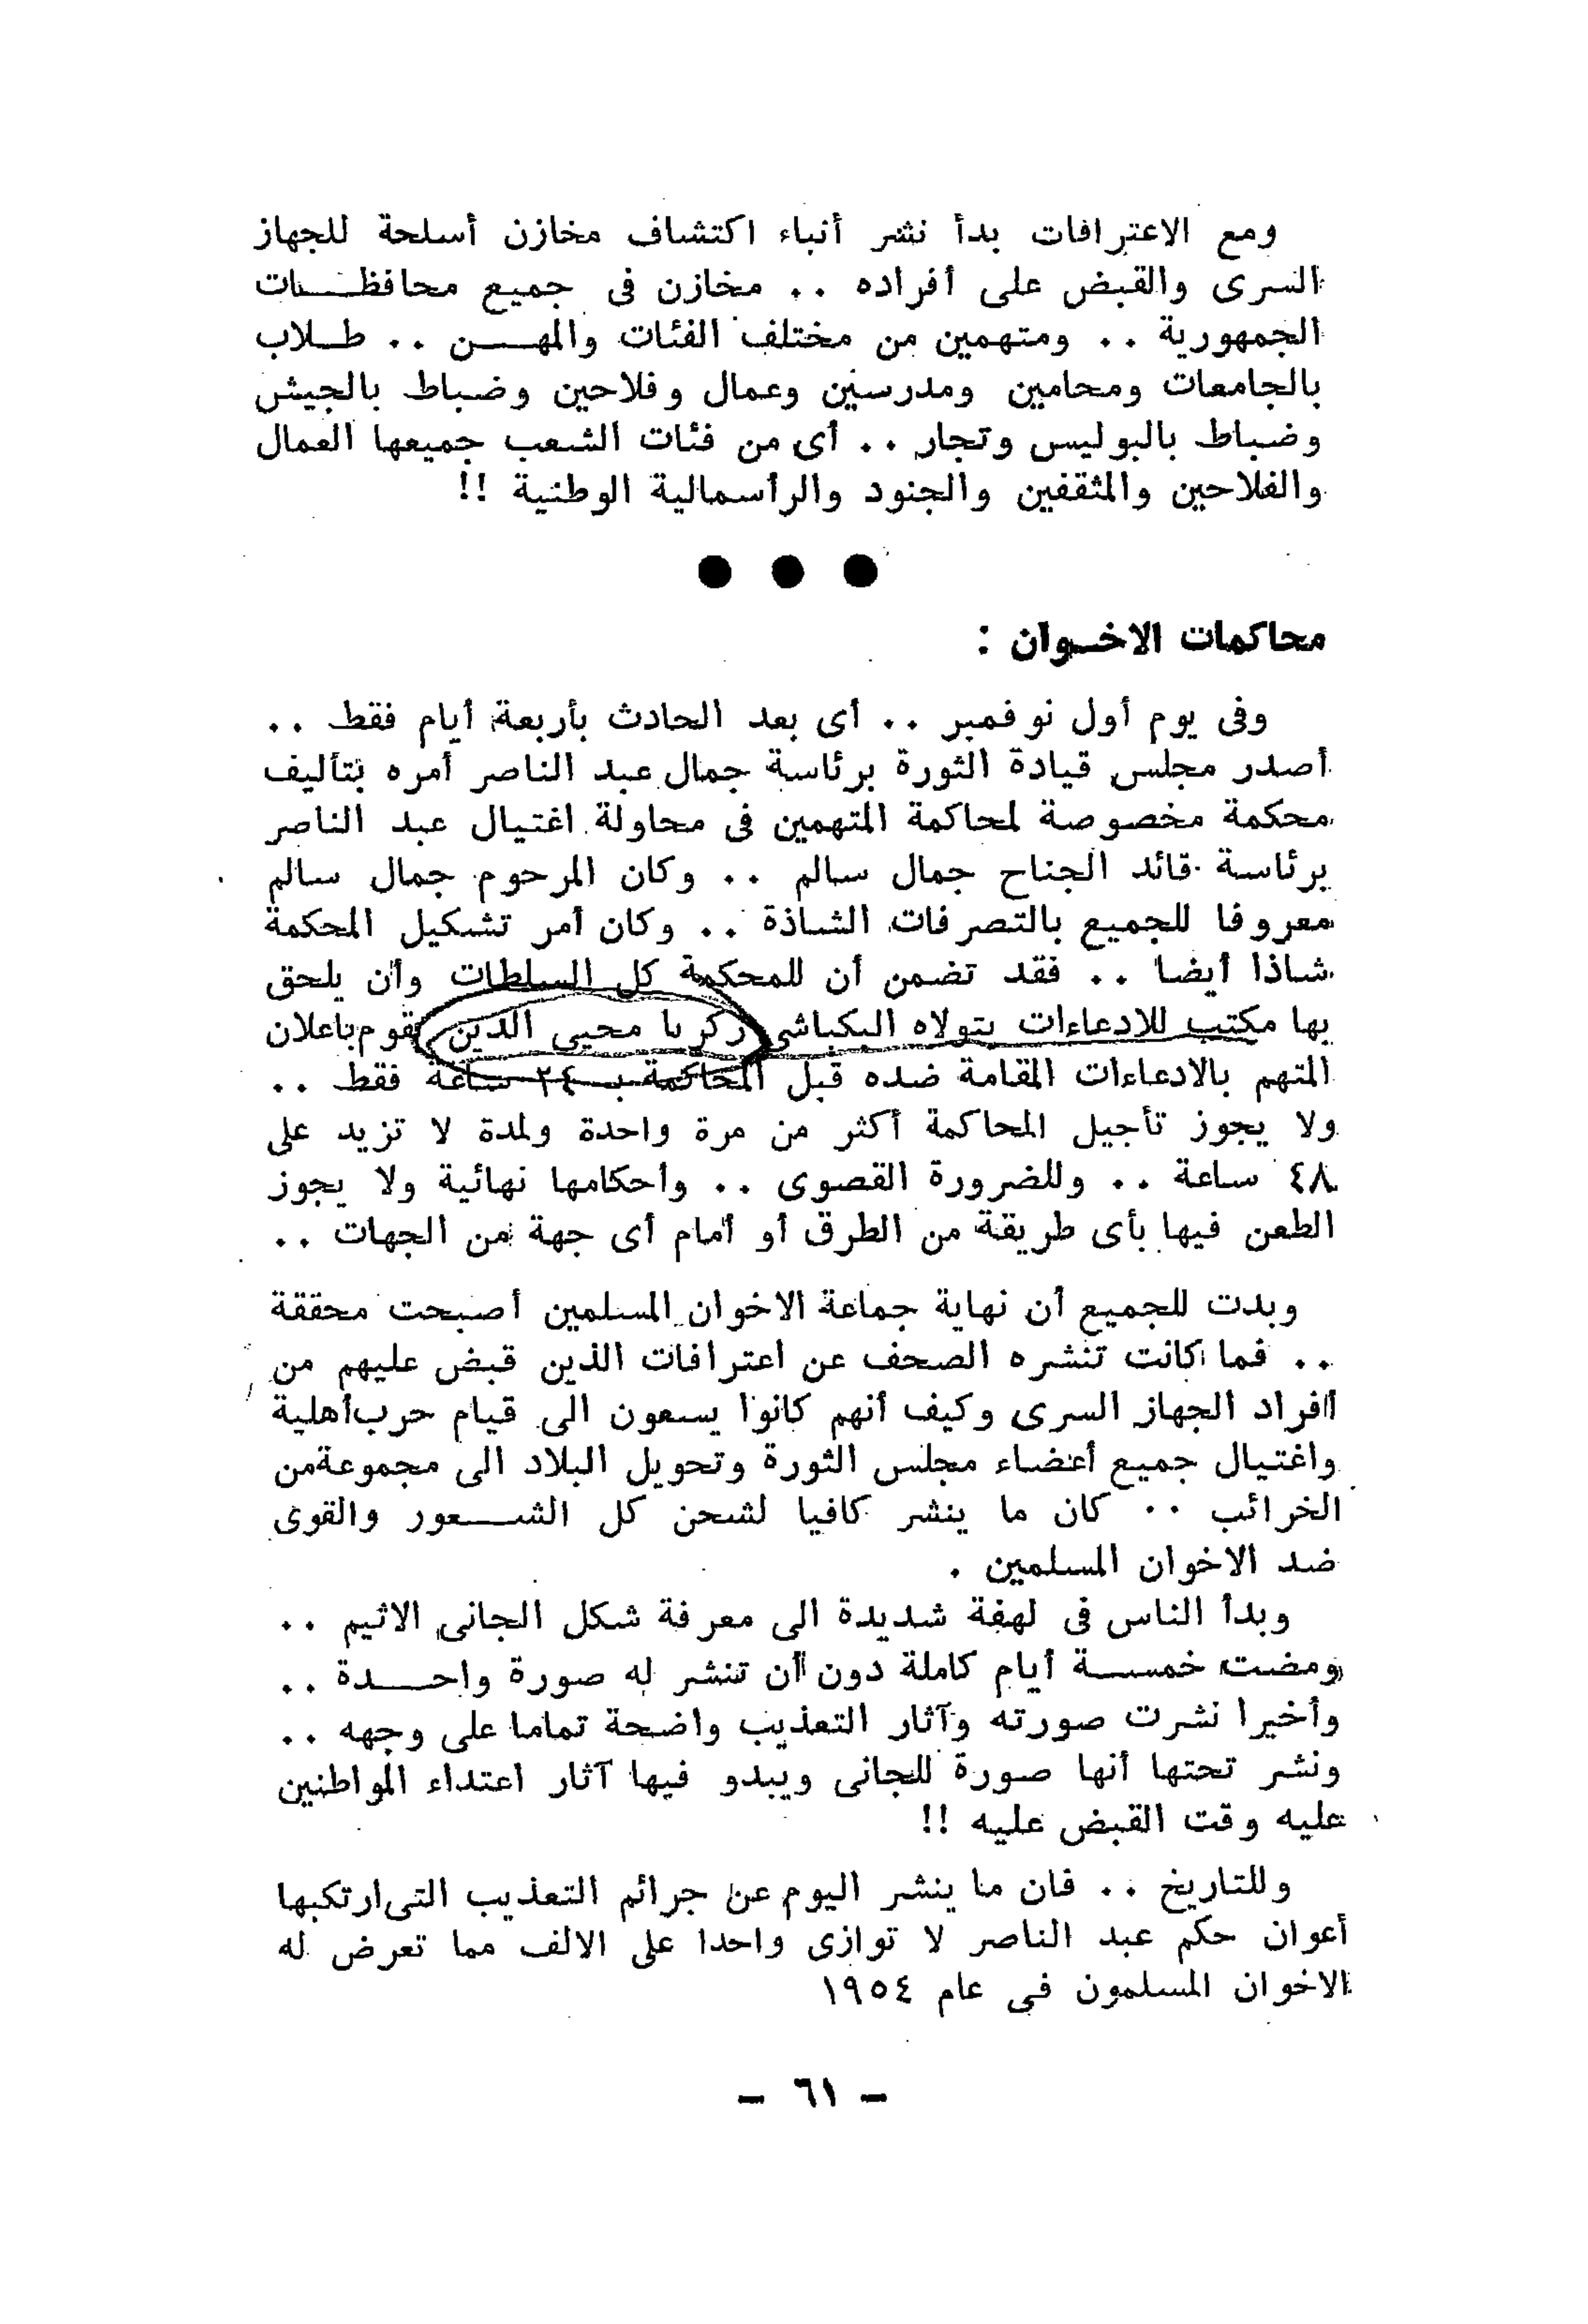 ومع الاعترافات بدأ نشر أنباء اكتشاف مخازن أسلحة للجهاز
السرى والقبض على أفراده .. مخازن فى جميع محافظات
الجمهورية .. ومتهمين من مختلف الفئات والمهن .. طلاب
بالجامعات ومحامين ومدرسين وعمال وفلاحين وضباط بالجيش
وضباط بالبوليس وتجار .. أى من فئات الشعب جميعها العمال
والفلاحين والمثقفين والجنود والرأسمالية الوطنية !!
● ● ●
محاكمات الاخوان :
وفى يوم أول نوفمبر .. أى بعد الحادث بأربعة أيام فقط ..
أصدر مجلس قيادة الثورة برئاسة جمال عبد الناصر أمره بتأليف
محكمة مخصوصة لمحاكمة المتهمين فى محاولة اغتيال عبد الناصر
برئاسة قائد الجناح جمال سالم .. وكان المرحوم جمال سالم
معروفا للجميع بالتصرفات الشاذة .. وكان أمر تشكيل المحكمة
شاذا أيضا .. فقد تضمن أن للمحكمة كل السلطات وأن يلحق
بها مكتب للادعاءات يتولاه البكباشى زكريا محيى الدين يقوم باعلان
المتهم بالادعاءات المقامة ضده قبل المحاكمة بـ ٢٤ ساعة فقط ..
ولا يجوز تأجيل المحاكمة أكثر من مرة واحدة ولمدة لا تزيد على
٤٨ ساعة .. وللضرورة القصوى .. وأحكامها نهائية ولا يجوز
الطعن فيها بأى طريقة من الطرق أو أمام أى جهة من الجهات ..
وبدت للجميع أن نهاية جماعة الاخوان المسلمين أصبحت محققة
.. فما كانت تنشره الصحف عن اعترافات الذين قبض عليهم من
أفراد الجهاز السرى وكيف أنهم كانوا يسعون الى قيام حرب أهلية
واغتيال جميع أعضاء مجلس الثورة وتحويل البلاد الى مجموعة من
الخرائب .. كان ما ينشر كافيا لشحن كل الشعور والقوى
ضد الاخوان المسلمين .
وبدأ الناس فى لهفة شديدة الى معرفة شكل الجانى الاثيم ..
ومضت خمسة أيام كاملة دون أن تنشر له صورة واحدة ..
وأخيرا نشرت صورته وآثار التعذيب واضحة تماما على وجهه ..
ونشر تحتها أنها صورة للجانى ويبدو فيها آثار اعتداء المواطنين
عليه وقت القبض عليه !!
وللتاريخ .. فان ما ينشر اليوم عن جرائم التعذيب التى ارتكبها
أعوان حكم عبد الناصر لا توازى واحدا على الالف مما تعرض له
الاخوان المسلمون فى عام ١٩٥٤
— ٦١ —